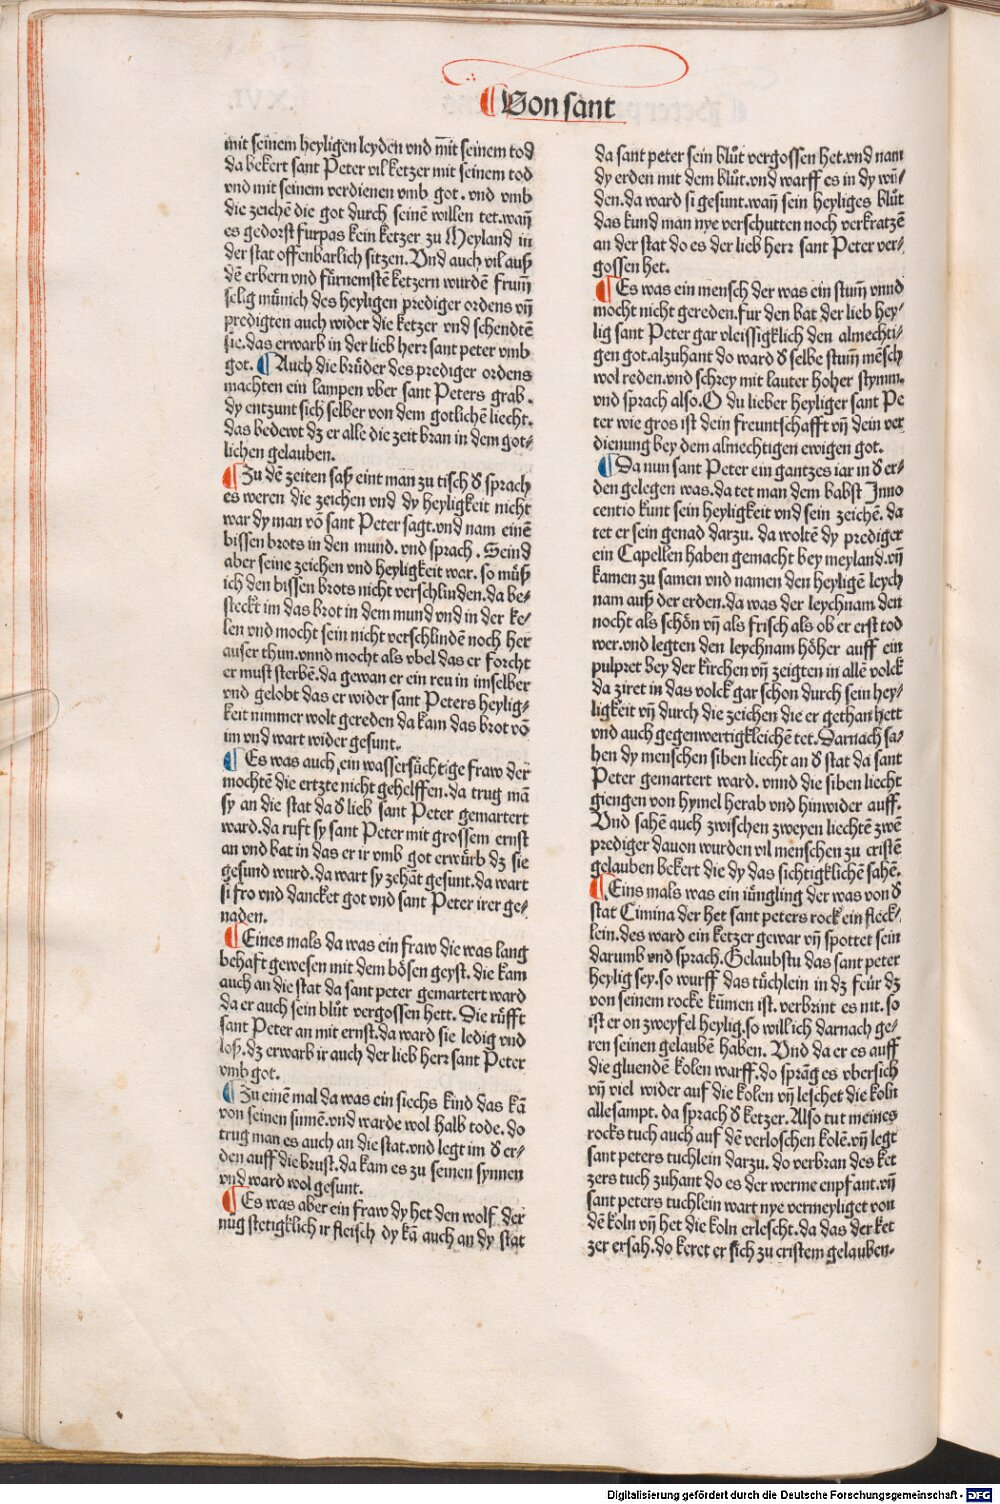 ¶ Von sant
mit seinem heyligen leyden vnd mit seinem tod
da bekert sant Peter vil ketzer mit seinem tod
vnd mit seinem verdienen vmb got. vnd vmb
die zeichē die got durch seinē willen tet. wañ
es gedorst furpas kein ketzer zu Meyland in
der stat offenbarlich sitzen. Vnd auch vil auß
dē erbern vnd fürnemstē ketzern wurdē frum̄
selig münich des heyligen prediger ordens vñ
predigten auch wider die ketzer vnd schendtē
sie. das erwarb in der lieb herr sant peter vmb
got. ¶ Auch die brüder des prediger ordens
machten ein lampen vber sant Peters grab.
dy entzunt sich selber von dem gotlichē liecht.
das bedewt dz er alle die zeit bran in dem got⸗
lichen gelauben.
¶ Zu dē zeiten saß eint man zu tisch d̕ sprach
es weren die zeichen vnd dy heyligkeit nicht
war dy man vō sant Peter sagt. vnd nam einē
bissen brots in den mund. vnd sprach. Seind
aber seine zeichen vnd heyligkeit war. so müß
ich den bissen brots nicht verschlinden. da be⸗
steckt im das brot in dem mund vnd in der ke⸗
len vnd mocht sein nicht verschlindē noch her
auser thun. vnnd mocht als vbel das er forcht
er must sterbē. da gewan er ein reu in imselber
vnd gelobt das er wider sant Peters heylig⸗
keit nimmer wolt gereden da kam das brot vō
im vnd wart wider gesunt.
¶ Es was auch ein wassersüchtige fraw der
mochtē die ertzte nicht gehelffen. da trug mā
sy an die stat da d̕ lieb sant Peter gemartert
ward. da ruft sy sant Peter mit grossem ernst
an vnd bat in das er ir vmb got erwürb dz sie
gesund wurd. da wart sy zehāt gesunt. da wart
si fro vnd dancket got vnd sant Peter irer ge⸗
naden.
¶ Eines mals da was ein fraw die was lang
behaft gewesen mit dem bösen geyst. die kam
auch an die stat da sant peter gemartert ward
da er auch sein blůt vergossen hett. Die růfft
sant Peter an mit ernst. da ward sie ledig vnd
loß. dz erwarb ir auch der lieb herr sant Peter
vmb got.
¶ Zu einē mal da was ein siechs kind das kā
von seinen sinnē. vnd warde wol halb tode. do
trug man es auch an die stat. vnd legt im d̕ er⸗
den auff die brust. da kam es zu seinen synnen
vnd ward wol gesunt.
¶ Es was aber ein fraw dy het den wolf der
nug stetigklich ir fleisch dy kā auch an dy stat
da sant peter sein blůt vergossen het. vnd nam
dy erden mit dem blůt. vnd warff es in dy wū⸗
den. da ward si gesunt. wañ sein heyliges blůt
das kund man nye verschutten noch verkratzē
an der stat do es der lieb herr sant Peter ver⸗
gossen het.
¶ Es was ein mensch der was ein stum̄ vnnd
mocht nicht gereden. fur den bat der lieb hey⸗
lig sant Peter gar vleissigklich den almechti⸗
gen got. alzuhant do ward d̕ selbe stum̄ mēsch
wol reden. vnd schrey mit lauter hoher stymm.
vnd sprach also. O du lieber heyliger sant Pe
ter wie gros ist dein freuntschafft vñ dein ver
dienung bey dem almechtigen ewigen got.
¶ Da nun sant Peter ein gantzes iar in d̕ er⸗
den gelegen was. da tet man dem babst Inno
centio kunt sein heyligkeit vnd sein zeichē. da
tet er sein genad darzu. da woltē dy prediger
ein Capellen haben gemacht bey meyland. vñ
kamen zu samen vnd namen den heyligē leych
nam auß der erden. da was der leychnam den
nocht als schön vñ als frisch als ob er erst tod
wer. vnd legten den leychnam höher auff ein
pulpret bey der kirchen vñ zeigten in allē volck
da ziret in das volck gar schon durch sein hey⸗
ligkeit vñ durch die zeichen die er gethan hett
vnd auch gegenwertigkleichē tet. Darnach sa⸗
hen dy menschen siben liecht an d̕ stat da sant
Peter gemartert ward. vnnd die siben liecht
giengen von hymel herab vnd hinwider auff.
Vnd sahē auch zwischen zweyen liechtē zwē
prediger dauon wurden vil menschen zu cristē
gelauben bekert die dy das sichtigklichē sahē.
¶ Eins mals was ein iüngling der was von d̕
stat Cimina der het sant peters rock ein fleck⸗
lein. des ward ein ketzer gewar vñ spottet sein
darumb vnd sprach. Gelaubstu das sant peter
heylig sey. so wurff das tüchlein in dz feür dz
von seinem rocke kūmen ist. verbrint es nit. so
ist er on zweyfel heylig. so will ich darnach ge⸗
ren seinen gelaubē haben. Vnd da er es auff
die gluendē kolen warff. do sprāg es vbersich
vñ viel wider auf die kolen vñ leschet die koln
allesampt. da sprach d̕ ketzer. Also tut meines
rocks tuch auch auf dē verloschen kolē. vñ legt
sant peters tuchlein darzu. do verbran des ket
zers tuch zuhant do es der werme enpfant. vñ
sant peters tuchlein wart nye vermeyliget von
dē koln vñ het die koln erlescht. da das der ket
zer ersah. do keret er sich zu cristem gelauben.
Digitalisierung gefördert durch die Deutsche Forschungsgemeinschaft - DFG